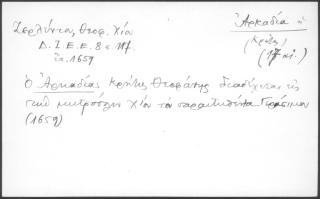 Ζερλέντου, Θεοφ. Χίου
Δ. Ι. Ε. Ε. 8 σ 117
ἔτ. 1659
Ἀρκαδία
(Κρήτης)
(17 αἰ.)
ὁ Ἀρκαδίας Κρήτης Θεοφάνης διαδέχεται εἰς
τὴν μητρόπολιν Χίου τὸν παραιτηθέντα Γεράσιμον
(1659)